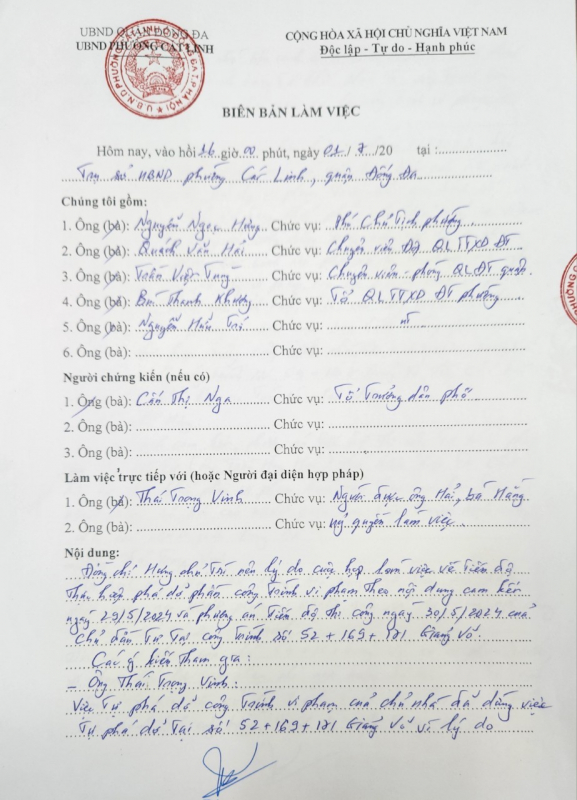 UBND QUẬN ĐỐNG ĐA
UBND PHƯỜNG CÁT LINH
CỘNG HÒA XÃ HỘI CHỦ NGHĨA VIỆT NAM
Độc lập - Tự do - Hạnh phúc
BIÊN BẢN LÀM VIỆC
Hôm nay, vào hồi 16 giờ 00 phút, ngày 01 / 7 /20 tại :
Trụ sở UBND phường Cát Linh, quận Đống Đa
Chúng tôi gồm:
1. Ông (bà): Nguyễn Ngọc Hưng Chức vụ: Phó Chủ tịch phường
2. Ông (bà): Quách Văn Hải Chức vụ: Chuyên viên Đội QLTTXD ĐT
3. Ông (bà): Trần Việt Chức vụ: Chuyên viên phòng QLĐT quận
4. Ông (bà): Bùi Thanh Khương Chức vụ: Tổ QLTTXD ĐT phường
5. Ông (bà): Nguyễn Hữu Trí Chức vụ: nt
6. Ông (bà): Chức vụ:
Người chứng kiến (nếu có)
1. Ông (bà): Cấn Thị Nga Chức vụ: Tổ Trưởng dân phố
2. Ông (bà): Chức vụ:
3. Ông (bà): Chức vụ:
Làm việc trực tiếp với (hoặc Người đại diện hợp pháp)
1. Ông (bà): Thái Trọng Vinh Chức vụ: Người được ông Hải, bà Hằng
2. Ông (bà): Chức vụ: uỷ quyền làm việc
Nội dung:
Đồng chí Hưng chủ trì nêu lý do cuộc họp làm việc về tiến độ
thực hiện phá dỡ phần công trình vi phạm theo nội dung cam kết
ngày 29/5/2024 và phương án tiến độ thi công ngày 30/5/2024 của
Chủ đầu tư tại công trình số 52+169+171 Giảng Võ.
Các ý kiến tham gia:
- Ông Thái Trọng Vinh:
Việc tự phá dỡ công trình vi phạm của chủ nhà đã dừng việc
tự phá dỡ tại số 52+169+171 Giảng Võ vì lý do